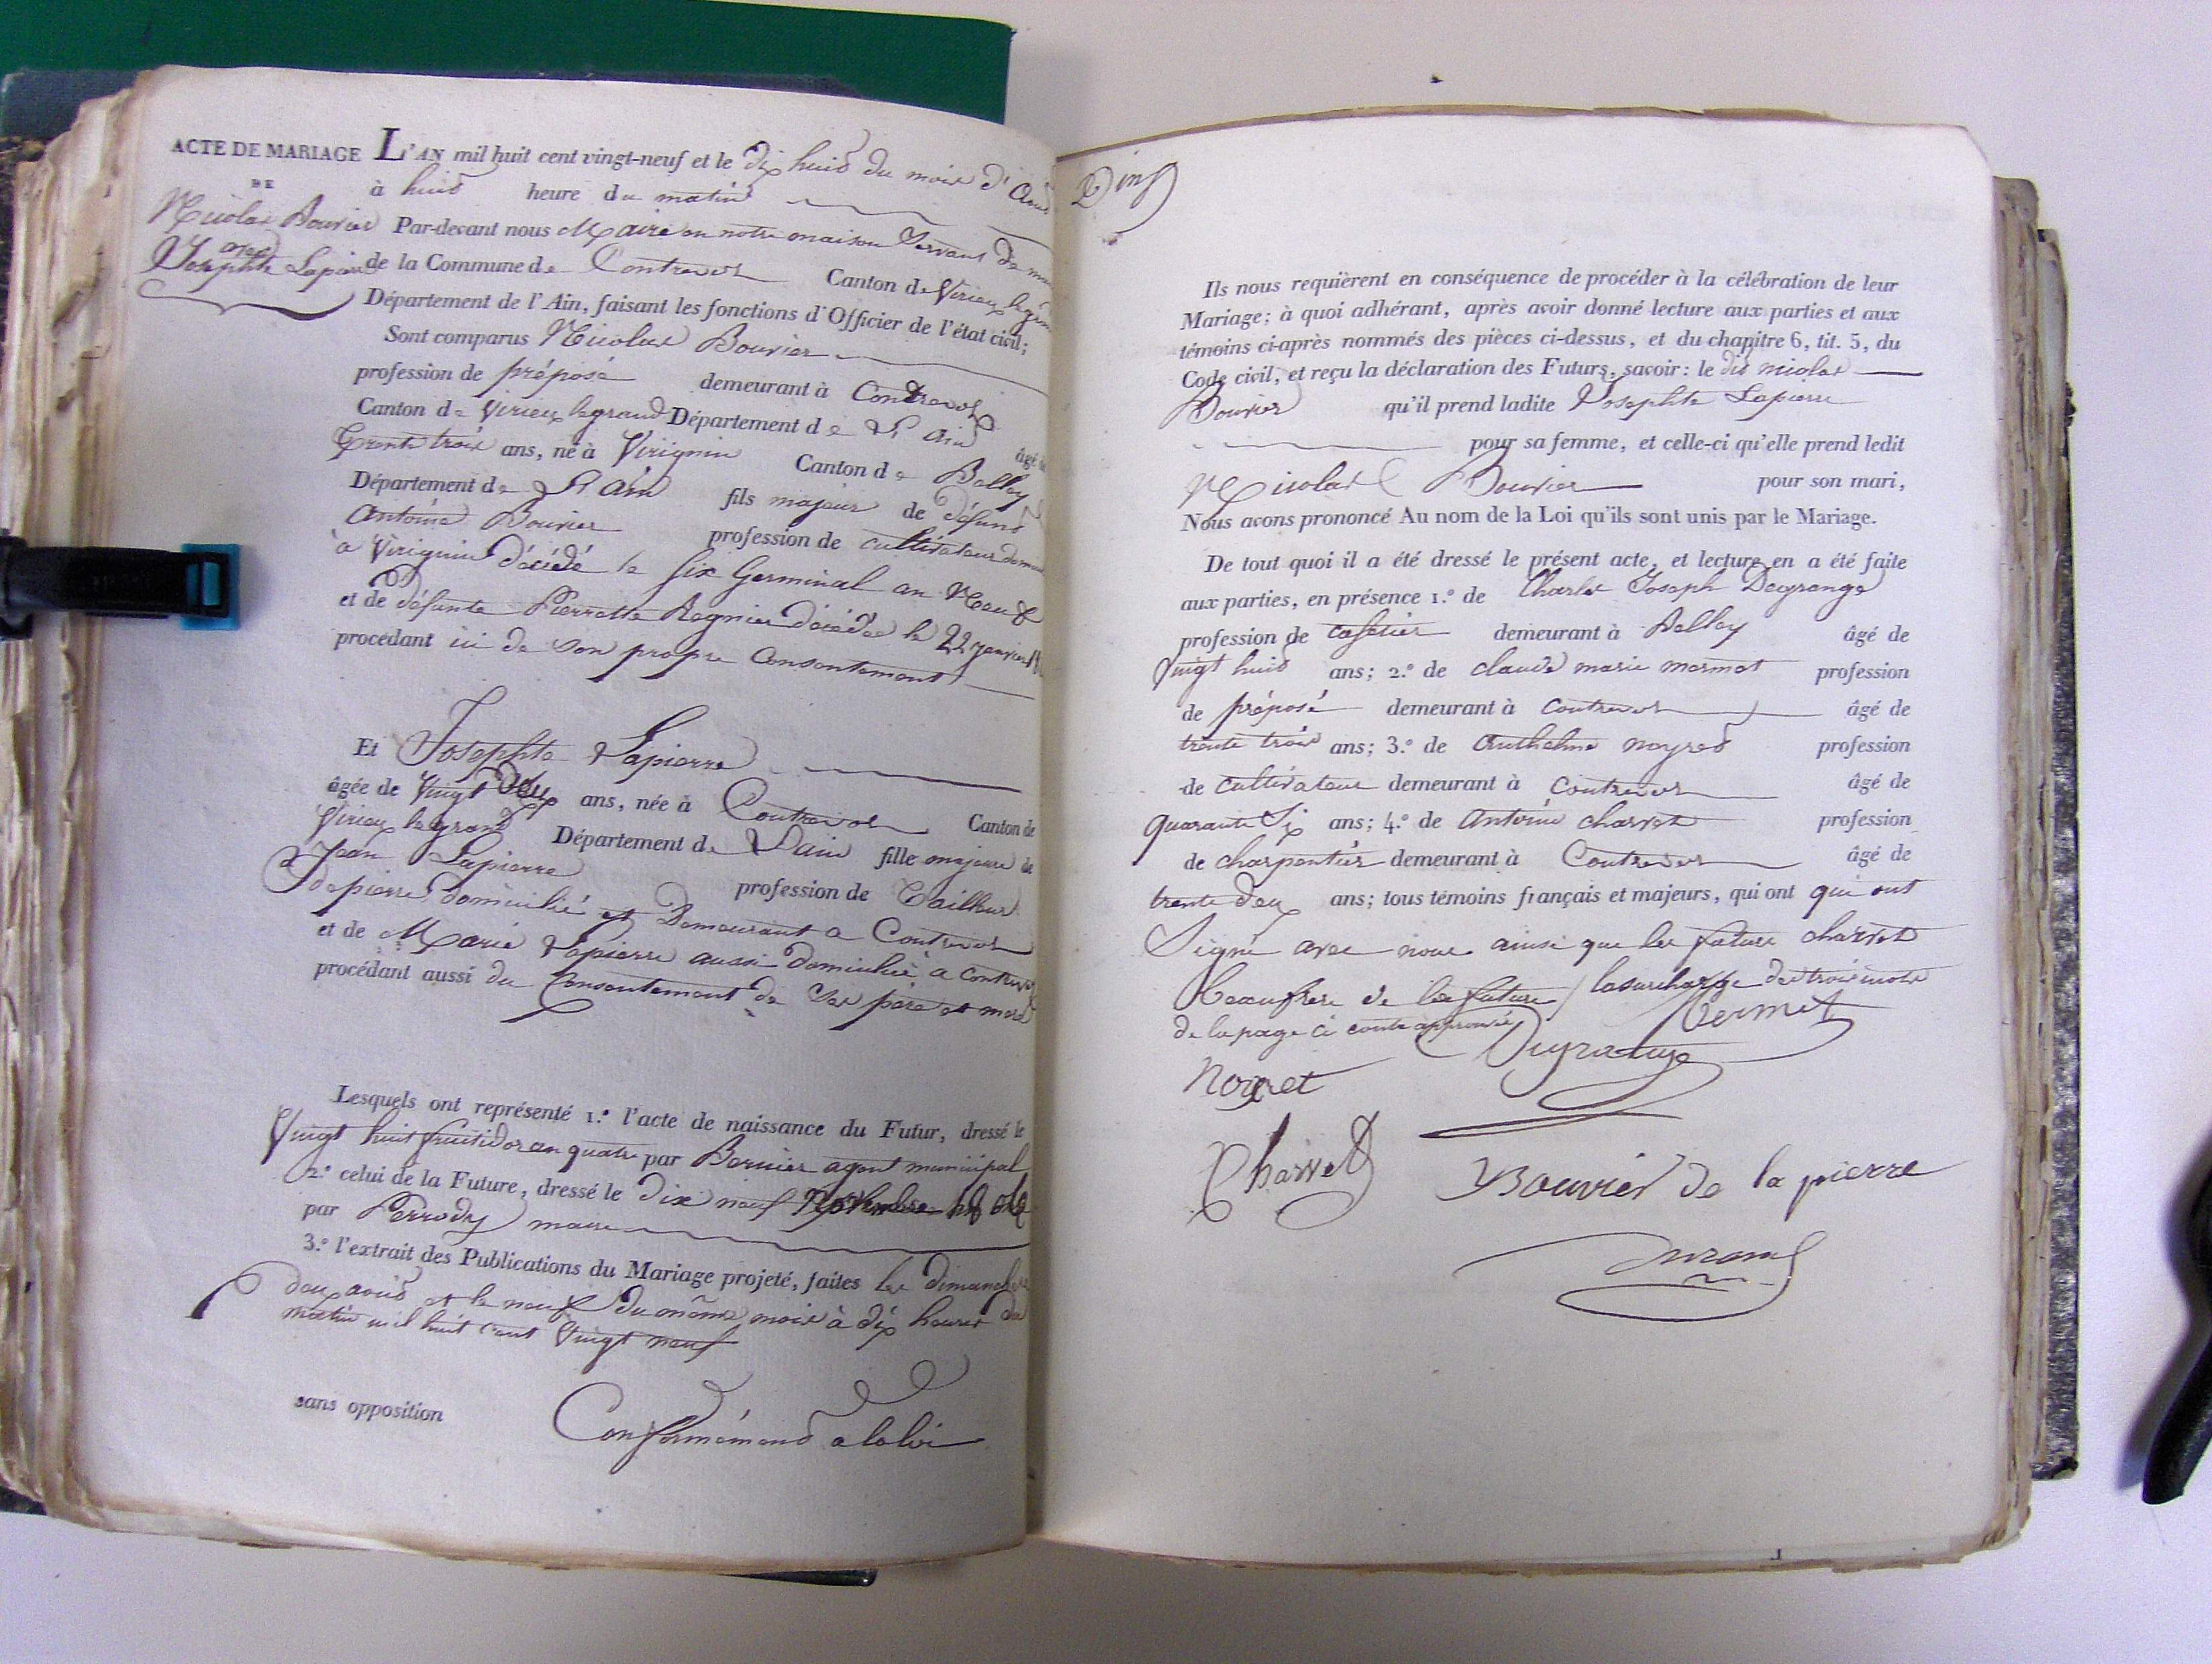 ACTE DE MARIAGE
DE
Nicolas Bouvier
avec
Josephte Lapierre
L'AN mil huit cent vingt-neuf et le dix huit du mois d'Aout
à huit heure du matin
Par-devant nous Maire en notre maison Servant de
de la Commune de Contrevoz Canton de Virieu legrand
Département de l'Ain, faisant les fonctions d'Officier de l'état civil;
Sont comparus Nicolas Bouvier
profession de préposé demeurant à Contrevoz
Canton de Virieu legrand Département de L'ain âgé de
Trente trois ans, né à Virignin Canton de Belley
Département de L'ain fils majeur de défunt
antoine Bouvier profession de cultivateur
a Virignin décédé le six Germinal an Neuf
et de défunte Pierrette Regnier décédée le 22 janvier
procédant ici de son propre Consentement
Et Josephte Lapierre
âgée de Vingt Deux ans, née à Contrevoz Canton de
Virieu le grand Département de Lain fille majeure de
Jean Lapierre profession de Tailleur
de pierre domicilié et Demeurant a Contrevoz
et de Marie Lapierre aussi domiciliée a contrevoz
procédant aussi du Consentement de Ses père et mere
Lesquels ont représenté 1.º l'acte de naissance du Futur, dressé le
Vingt huit fructidor an quatre par Bernier agent municipal
2.º celui de la Future, dressé le dix neuf
par Perrody maire
3.º l'extrait des Publications du Mariage projeté, faites les dimanches
deux aoud et le neuf du même mois à dix heures du
matin mil huit cent Vingt neuf
sans opposition Conformémend a la loi
Ils nous requièrent en conséquence de procéder à la célébration de leur
Mariage; à quoi adhérant, après avoir donné lecture aux parties et aux
témoins ci-après nommés des pièces ci-dessus, et du chapitre 6, tit. 5, du
Code civil, et reçu la déclaration des Futurs, savoir: le dit nicolas
Bouvier qu'il prend ladite Josephte Lapierre
pour sa femme, et celle-ci qu'elle prend ledit
Nicolas Bouvier pour son mari,
Nous avons prononcé Au nom de la Loi qu'ils sont unis par le Mariage.
De tout quoi il a été dressé le présent acte, et lecture en a été faite
aux parties, en présence 1.º de Charles Joseph Degrange
profession de cafetier demeurant à Belley âgé de
Vingt huit ans; 2.º de claude marie mermet profession
de préposé demeurant à contrevoz âgé de
trente trois ans; 3.º de Anthelme noyred profession
de cultivateur demeurant à contrevoz âgé de
quarante Six ans; 4.º de Antoine charvet profession
de charpentier demeurant à Contrevoz âgé de
trente deux ans; tous témoins français et majeurs, qui ont qui ont
Signé avec nous ainsi que les future charvet
beaufrere de la future / la surcharge des trois mots
de la page ci contre approuvée
mermet
Dugrange
noyret
Charvet
Bouvier de la pierre